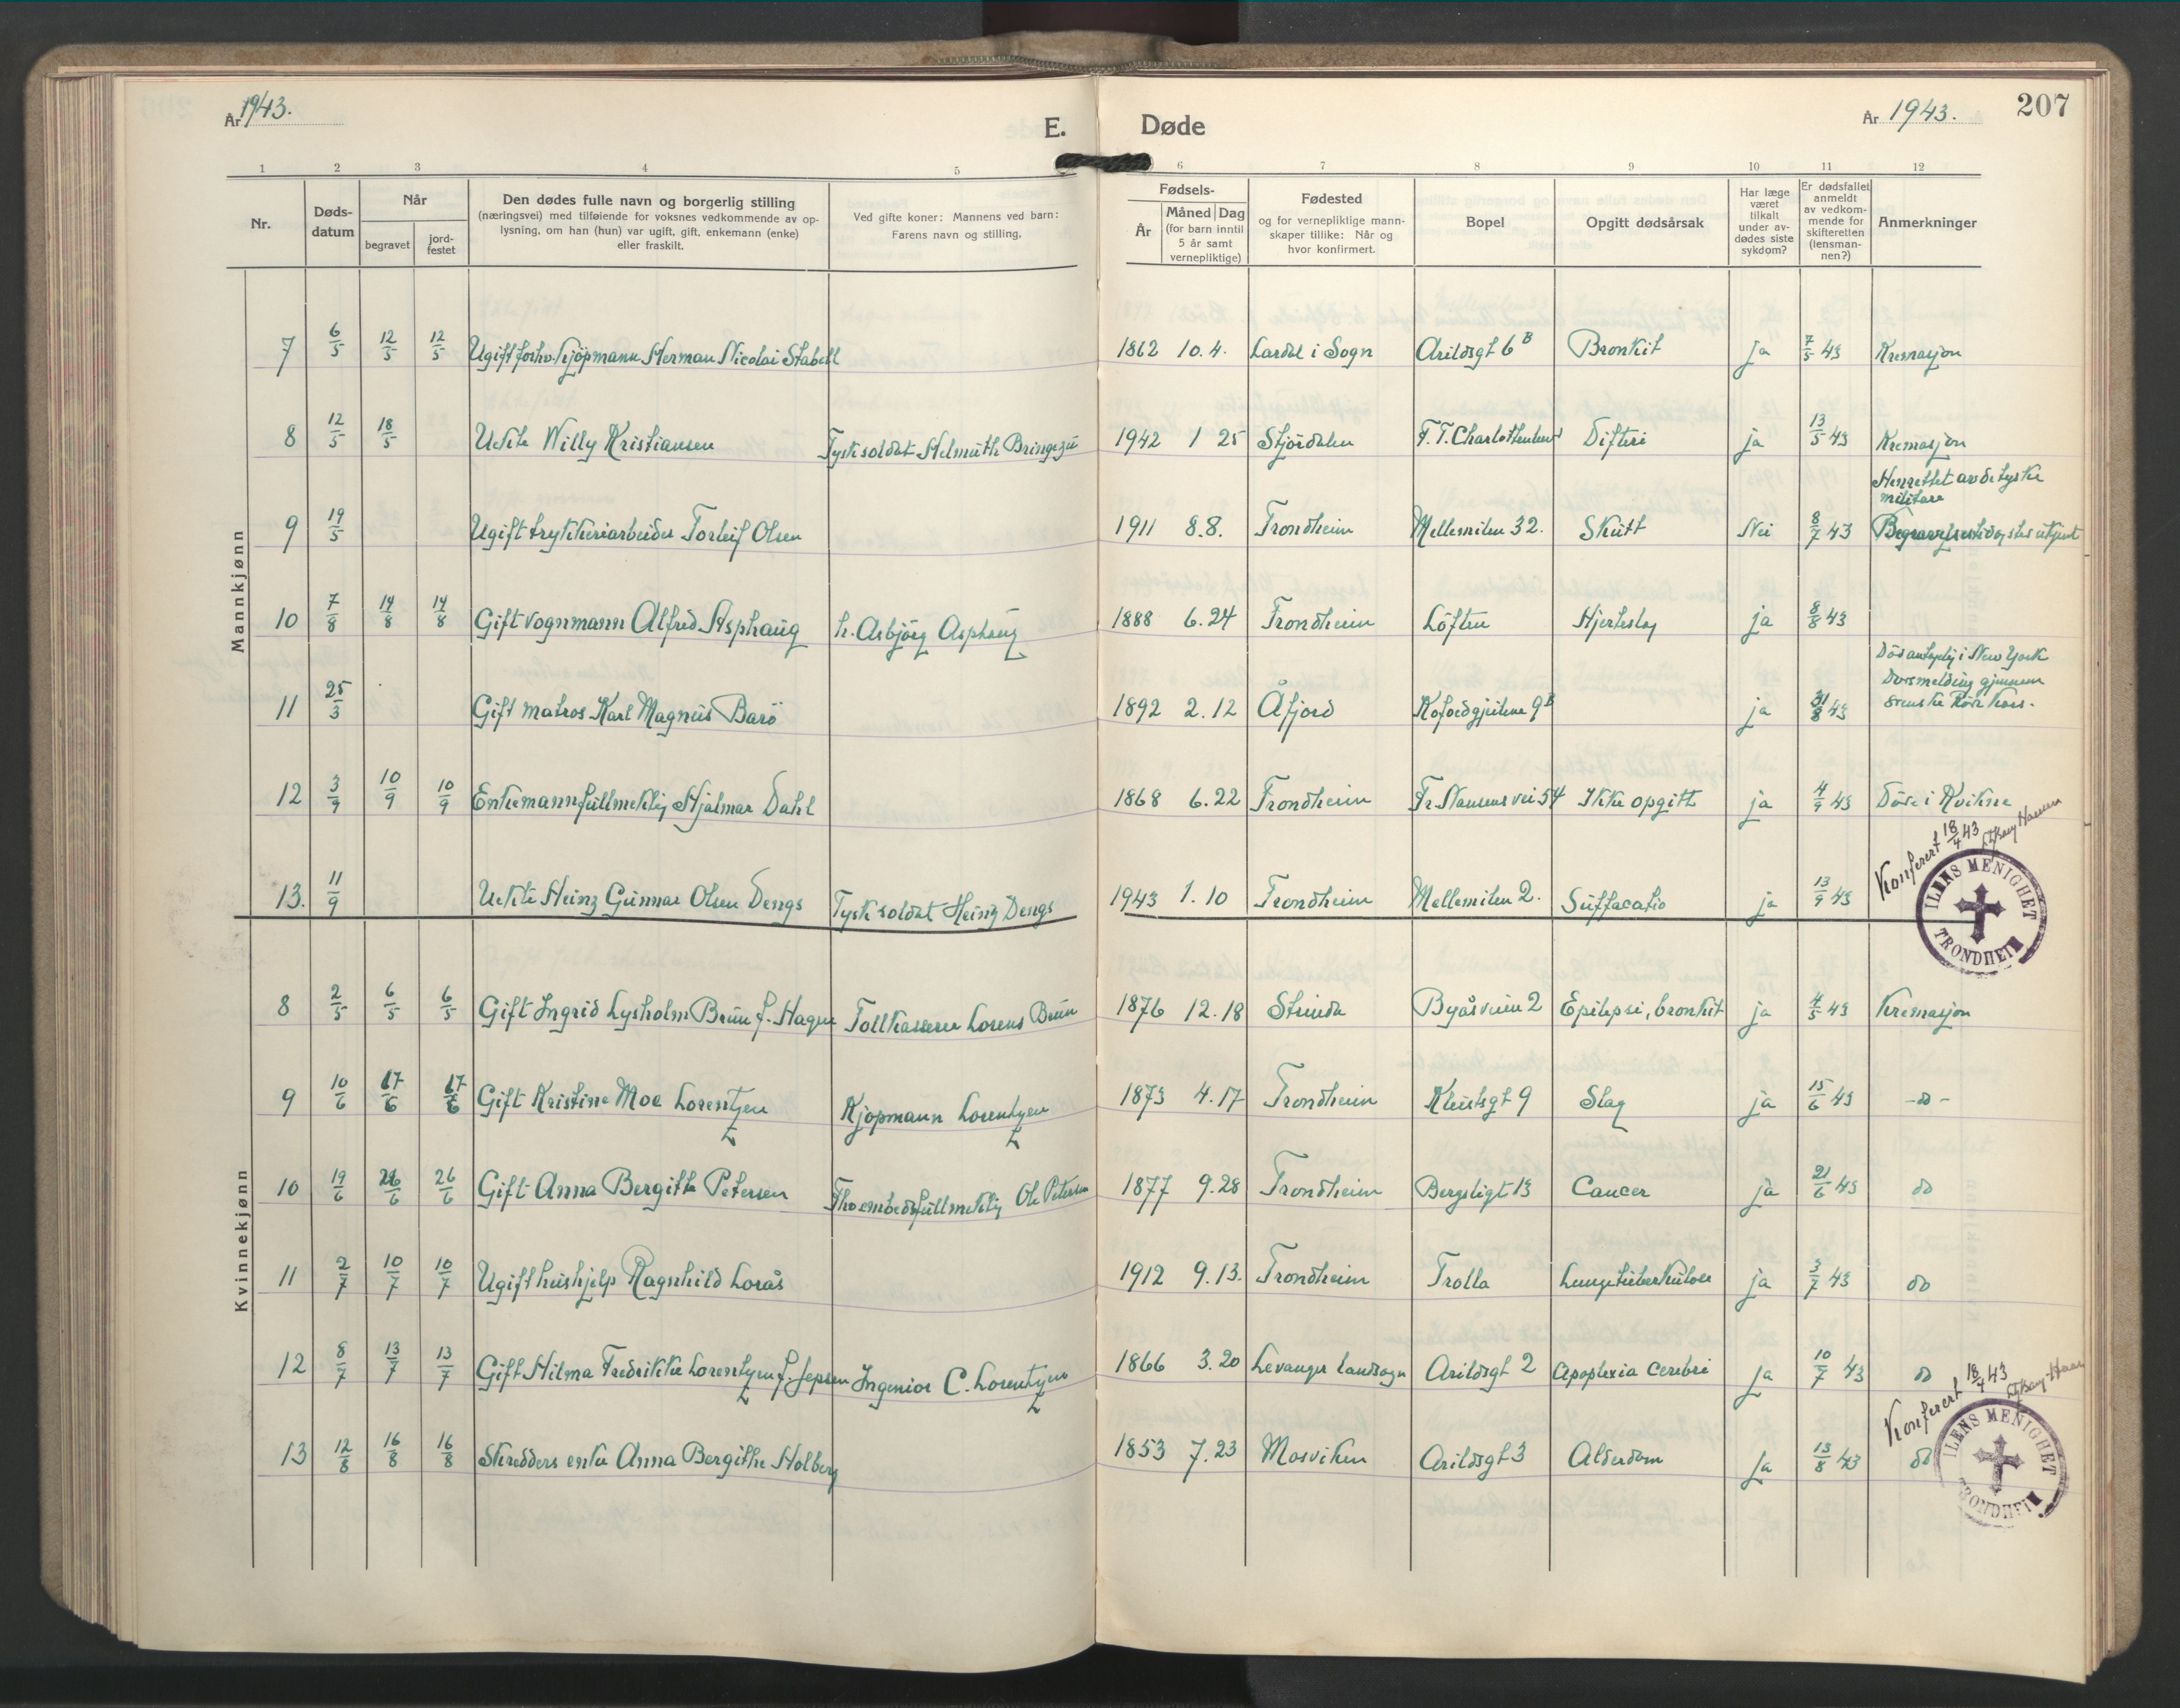 År 1943.
E.
Døde
År 1943.
207
1 2 3 4 5 6 7 8 9 10 11 12
Nr.
Døds-
datum
Når
begravet
jord-
festet
Den dødes fulle navn og borgerlig stilling
(næringsvei) med tilføiende for voksnes vedkommende av op-
lysning, om han (hun) var ugift, gift, enkemann (enke)
eller fraskilt.
Ved gifte koner: Mannens ved barn:
Farens navn og stilling.
Fødsels-
År
Måned Dag
(for barn inntil
5 år samt
vernepliktige)
Fødested
og for vernepliktige mann-
skaper tillike: Når og
hvor konfirmert.
Bopel
Opgitt dødsårsak
Har læge
været
tilkalt
under av-
dødes siste
sykdom?
Er dødsfallet
anmeldt
av vedkom-
mende for
skifteretten
(lensman-
nen?)
Anmerkninger
Mannkjønn
7 6/5 12/5 12/5 Ugift forhv. kjöpmann Herman Nicolai Stabell 1862 10.4. i Sogn Arildsgt 6 B Bronkit ja 7/5 43 Kremasjon
8 12/5 18/5 Uekte Willy Kristiansen Tysk soldat Helmuth Bringezu 1942 1 25 Stjördalen Difteri ja 13/5 43 Kremasjon
Henrettet av de tyske
militære
9 19/5 Ugift trykkeriarbeider Torleif Olsen 1911 8.8. Trondheim Mellemilen 32. Skutt Nei 8/7 43
10 7/8 14/8 14/8 Gift vognmann Alfred Asphaug h. Asbjörg Asphaug 1888 6.24 Trondheim Löften Hjerteslag ja 8/8 43
Död antagelig i New York
Dødsmelding gjennem
svenske Röde Kors.
11 25/3 Gift matros Karl Magnus Barö 1892 2.12 Åfjord Kofoedgjeilene 9 B ja 31/8 43
12 3/9 10/9 10/9 Enkemann fullmektig Hjalmar Dahl 1868 6.22 Trondheim Fr. Nansens vei 54 Ikke opgitt ja 4/9 43 Döde i Kvikne
13. 11/9 Uekte Heinz Gunnar Olsen Dengs Tysk soldat Heinz Dengs 1943 1.10 Trondheim Mellemilen 2. Suffacatio ja 13/9 43
Konferert 18/4 43
ILENS MENIGHET
TRONDHEIM
Kvinnekjønn
8 2/5 6/5 6/5 Gift Ingrid Lysholm Brun f. Hagen Tollkasserer Lorens Brun 1876 12.18 Strinda Byåsveien 2 Epilepsi, bronkit ja 4/5 43 Kremasjon
9 10/6 17/6 17/6 Gift Kristine Moe Lorentzen Kjøpmann Lorentzen 1873 4.17 Trondheim 9 Slag ja 15/6 43 -do-
10 19/6 26/6 26/6 Gift Anna Bergitte Petersen Ole Petersen 1877 9.28 Trondheim Bergsligt 13 Cancer ja 21/6 43 do
11 2/7 10/7 10/7 Ugift hushjelp Ragnhild Lorås 1912 9.13. Trondheim Trolla Lungetuberkulose ja 3/7 43 do
12 8/7 13/7 13/7 Gift Hilma Fredrikke Lorentzen f. Jepsen Ingeniør C. Lorentzen 1866 3.20 Levanger landsogn Arildsgt 2 Apoplexia cerebri ja 10/7 43 do
13 12/8 16/8 16/8 Skredders enke Anna Bergithe Holberg 1853 7.23 Mosviken Arildsgt 3 Alderdom ja 13/8 43 do
Konferert 18/4 43
ILENS MENIGHET
TRONDHEIM